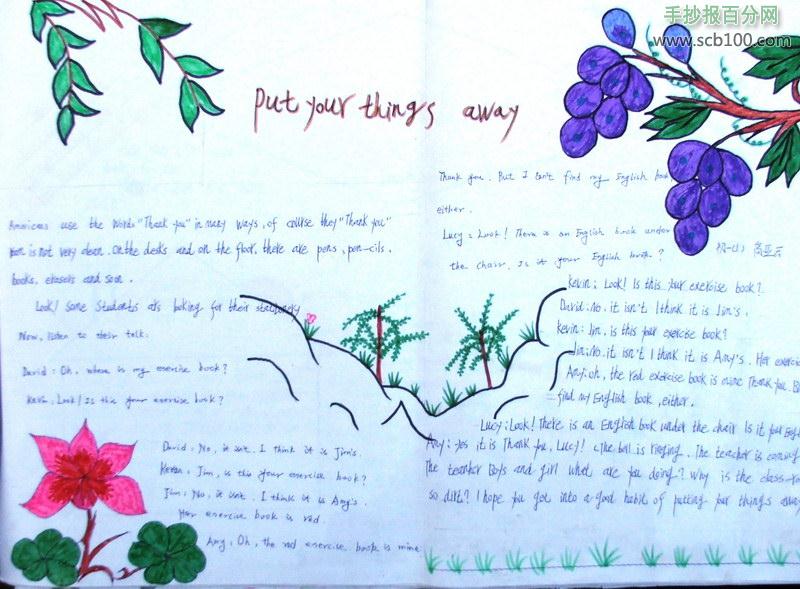 手抄报百分网
www.scb100.com
Put your things away
Americas use the words "Thank you" in many ways, of course they "Thank you"
is not very clean. On the desks and on the floor, there are pens, pen-cils.
books, erasers and soon.
Look! Some students are looking for their stationery
Now, listen to their talk.
David: Oh, where is my exercise book?
Kevin: Look! Is this your exercise book?
David: No, it isn't. I think it is Jim's.
Kevin: Jim, is this your exercise book?
Jim: No, it isn't. I think it is Amy's.
Her exercise book is red.
Amy: Oh, the red exercise book is mine
Thank you. But I can't find my English book
either.
Lucy: Look! There is an English book under
the chair, Is it your English book?
初一(1)
Kevin: Look! Is this your exercise book?
David: No. it isn't I think it is Jim's.
Kevin: Jim, is this your exercise book?
Jim: No. it isn't I think it is Amy's. Her exercise
Amy: oh, the red exercise book is mine Thank you B
find my English book, either.
Lucy: Look! There is an English book under the chair Is it your English
Amy: Yes it is Thank you, Lucy! The bell is ringing. The teacher is coming
The teacher Boys and girl what are you doing? Why is the class-
so dirt? I hope you got into a good habit of putting your things away